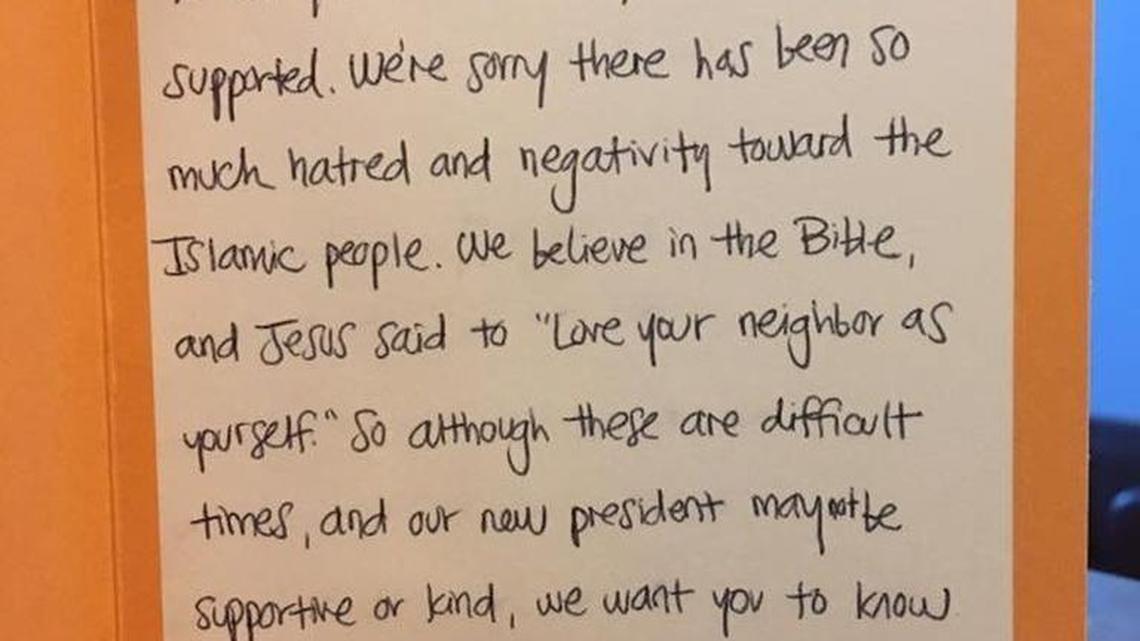 supported. We're sorry there has been so
much hatred and negativity toward the
Islamic people. We believe in the Bible,
and Jesus said to "Love your neighbor as
yourself." So although these are difficult
times, and our new president may not be
supportive or kind, we want you to know